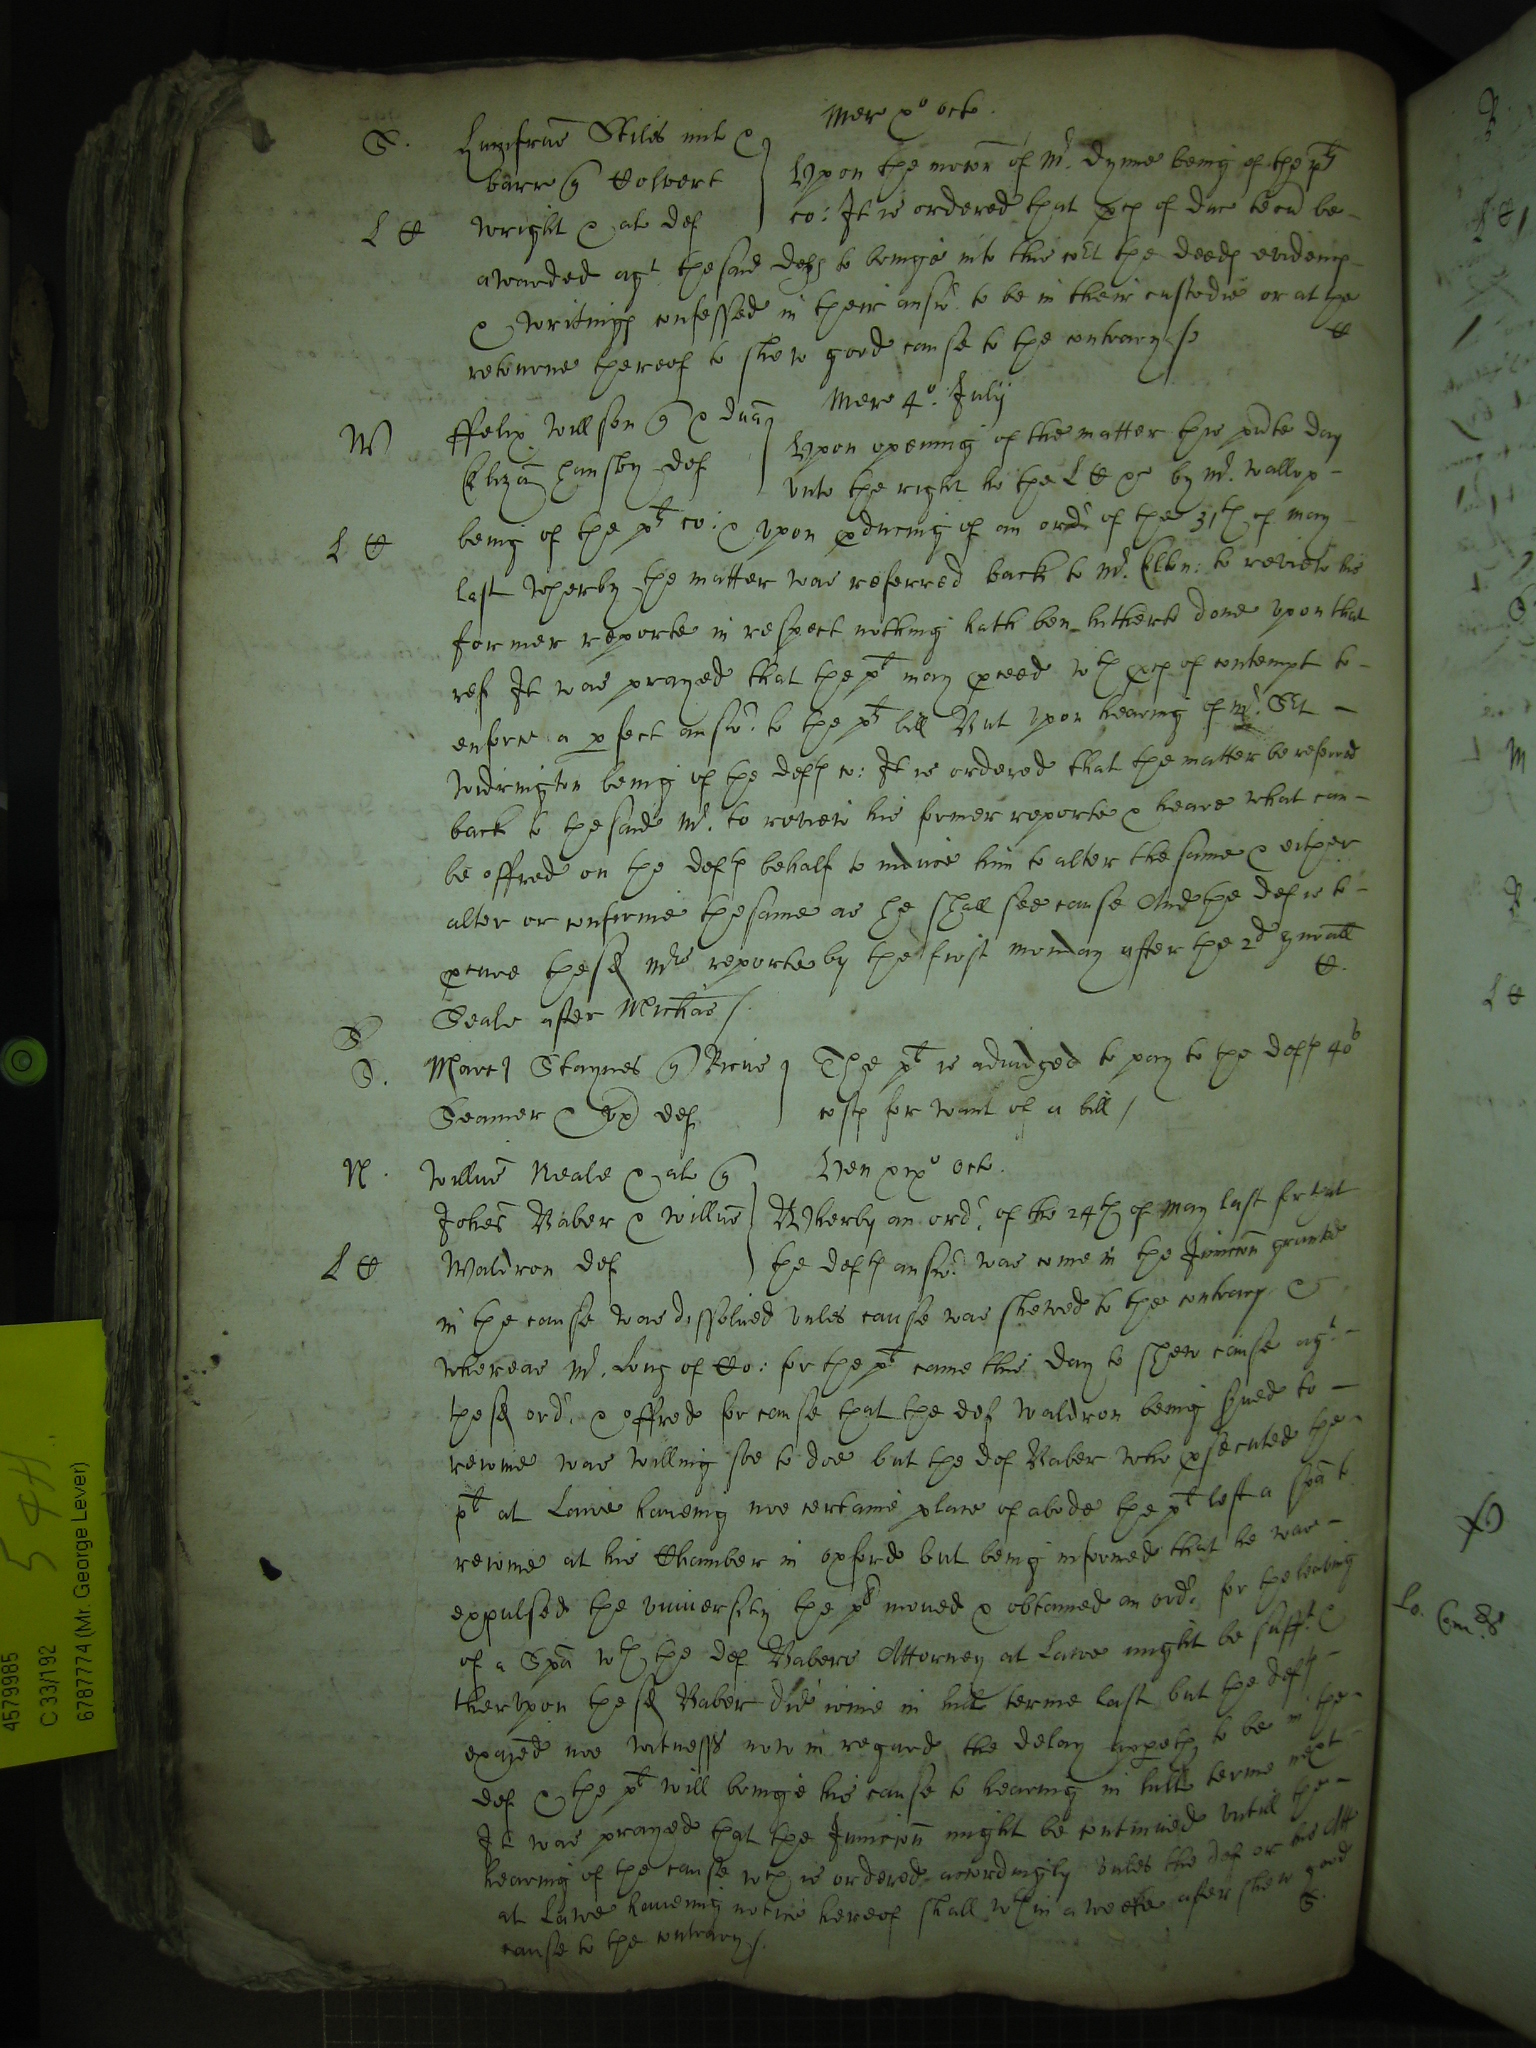 Mer xº Octo.
S. Humfrus Stiles mil &
barr q Colvert
Upon the mocon of Mr. Dynne being of the plt
L C Wright & al def
co: It is ordered that proces of duc tecu be
awarded agt the said defts to bringe into this cort the deeds evidences
& writings confessed in their answ: to be in their custodie or at the
retourne thereof to shew good cause to the contrary /.
C
Mer 4º. July
W ffelix Willson q
Upon opening of the matter this pnte day
Eliza Hansby def
unto the right ho the L C &c by Mr. Wallop
L C being of the plts co: & upon pducing of an ordr of the 31th of may
last wherby the matter was referred back to Mr. to review his
former reporte in respect nothing hath ben hitherto done upon that
ref It was prayed that the plt may pceed wth proces of contempt to
enforce a pfect answ: to the plts bill But upon hearing of Mr. Sert
Widrington being of the defts co: It is ordered that the matter be referred
back to the said Mr. to review his former reporte & heare what can
be offred on the defts behalf to induce him to alter the same & either
alter or confirme the same as he shall see cause And the def is to
pcure the sd Mrs reporte by the first monday after the 2d gnrall
C.
Seale after Michas /.
S
S. Staynes q
The plt is adiudged to pay to the defts 40s
Seamer & ux def
costs for want of a bill /
N. Willus Neale & al q
Ven xixº Octo.
Johes Baber & Willus
Wherby an ordr. of the 24th of may last for that
L C Waldron def
the defts answ: was come in the Iniuncon graunted
in the cause was dissolved unles cause was shewed to the contrary &
whereas Mr. Long of Co: for the plt came this day to shew cause agt.
the sd ordr. & offred for cause that the def Waldron being served to
reioine was willing soe to doe but the def Baber who psecuted the
plt at Lawe haveing noe certaine place of abode the plt left a spa to
reioine at his Chamber in oxford but being informed that he was
expulsed the university the plt moved & obtained an ordr. for the leaving
of a Spa wth the def Babers Attorney at Lawe might be suff. &
therupon the sd Baber did ioine in hill terme last but the defts
exaied noe witness now in regard the delay appeth to be in the
def & the plt will bringe his cause to hearing in hill terme next
It was prayed that the Iniuncon might be continued untill the
hearing of the cause wch is ordered accordingly unles the def or his Att
at Lawe haveing notice hereof shall wthin a weeke after shew good
cause to the contrary /.
S.
4579985
C 33/192
6787774 (Mr. George Lever)